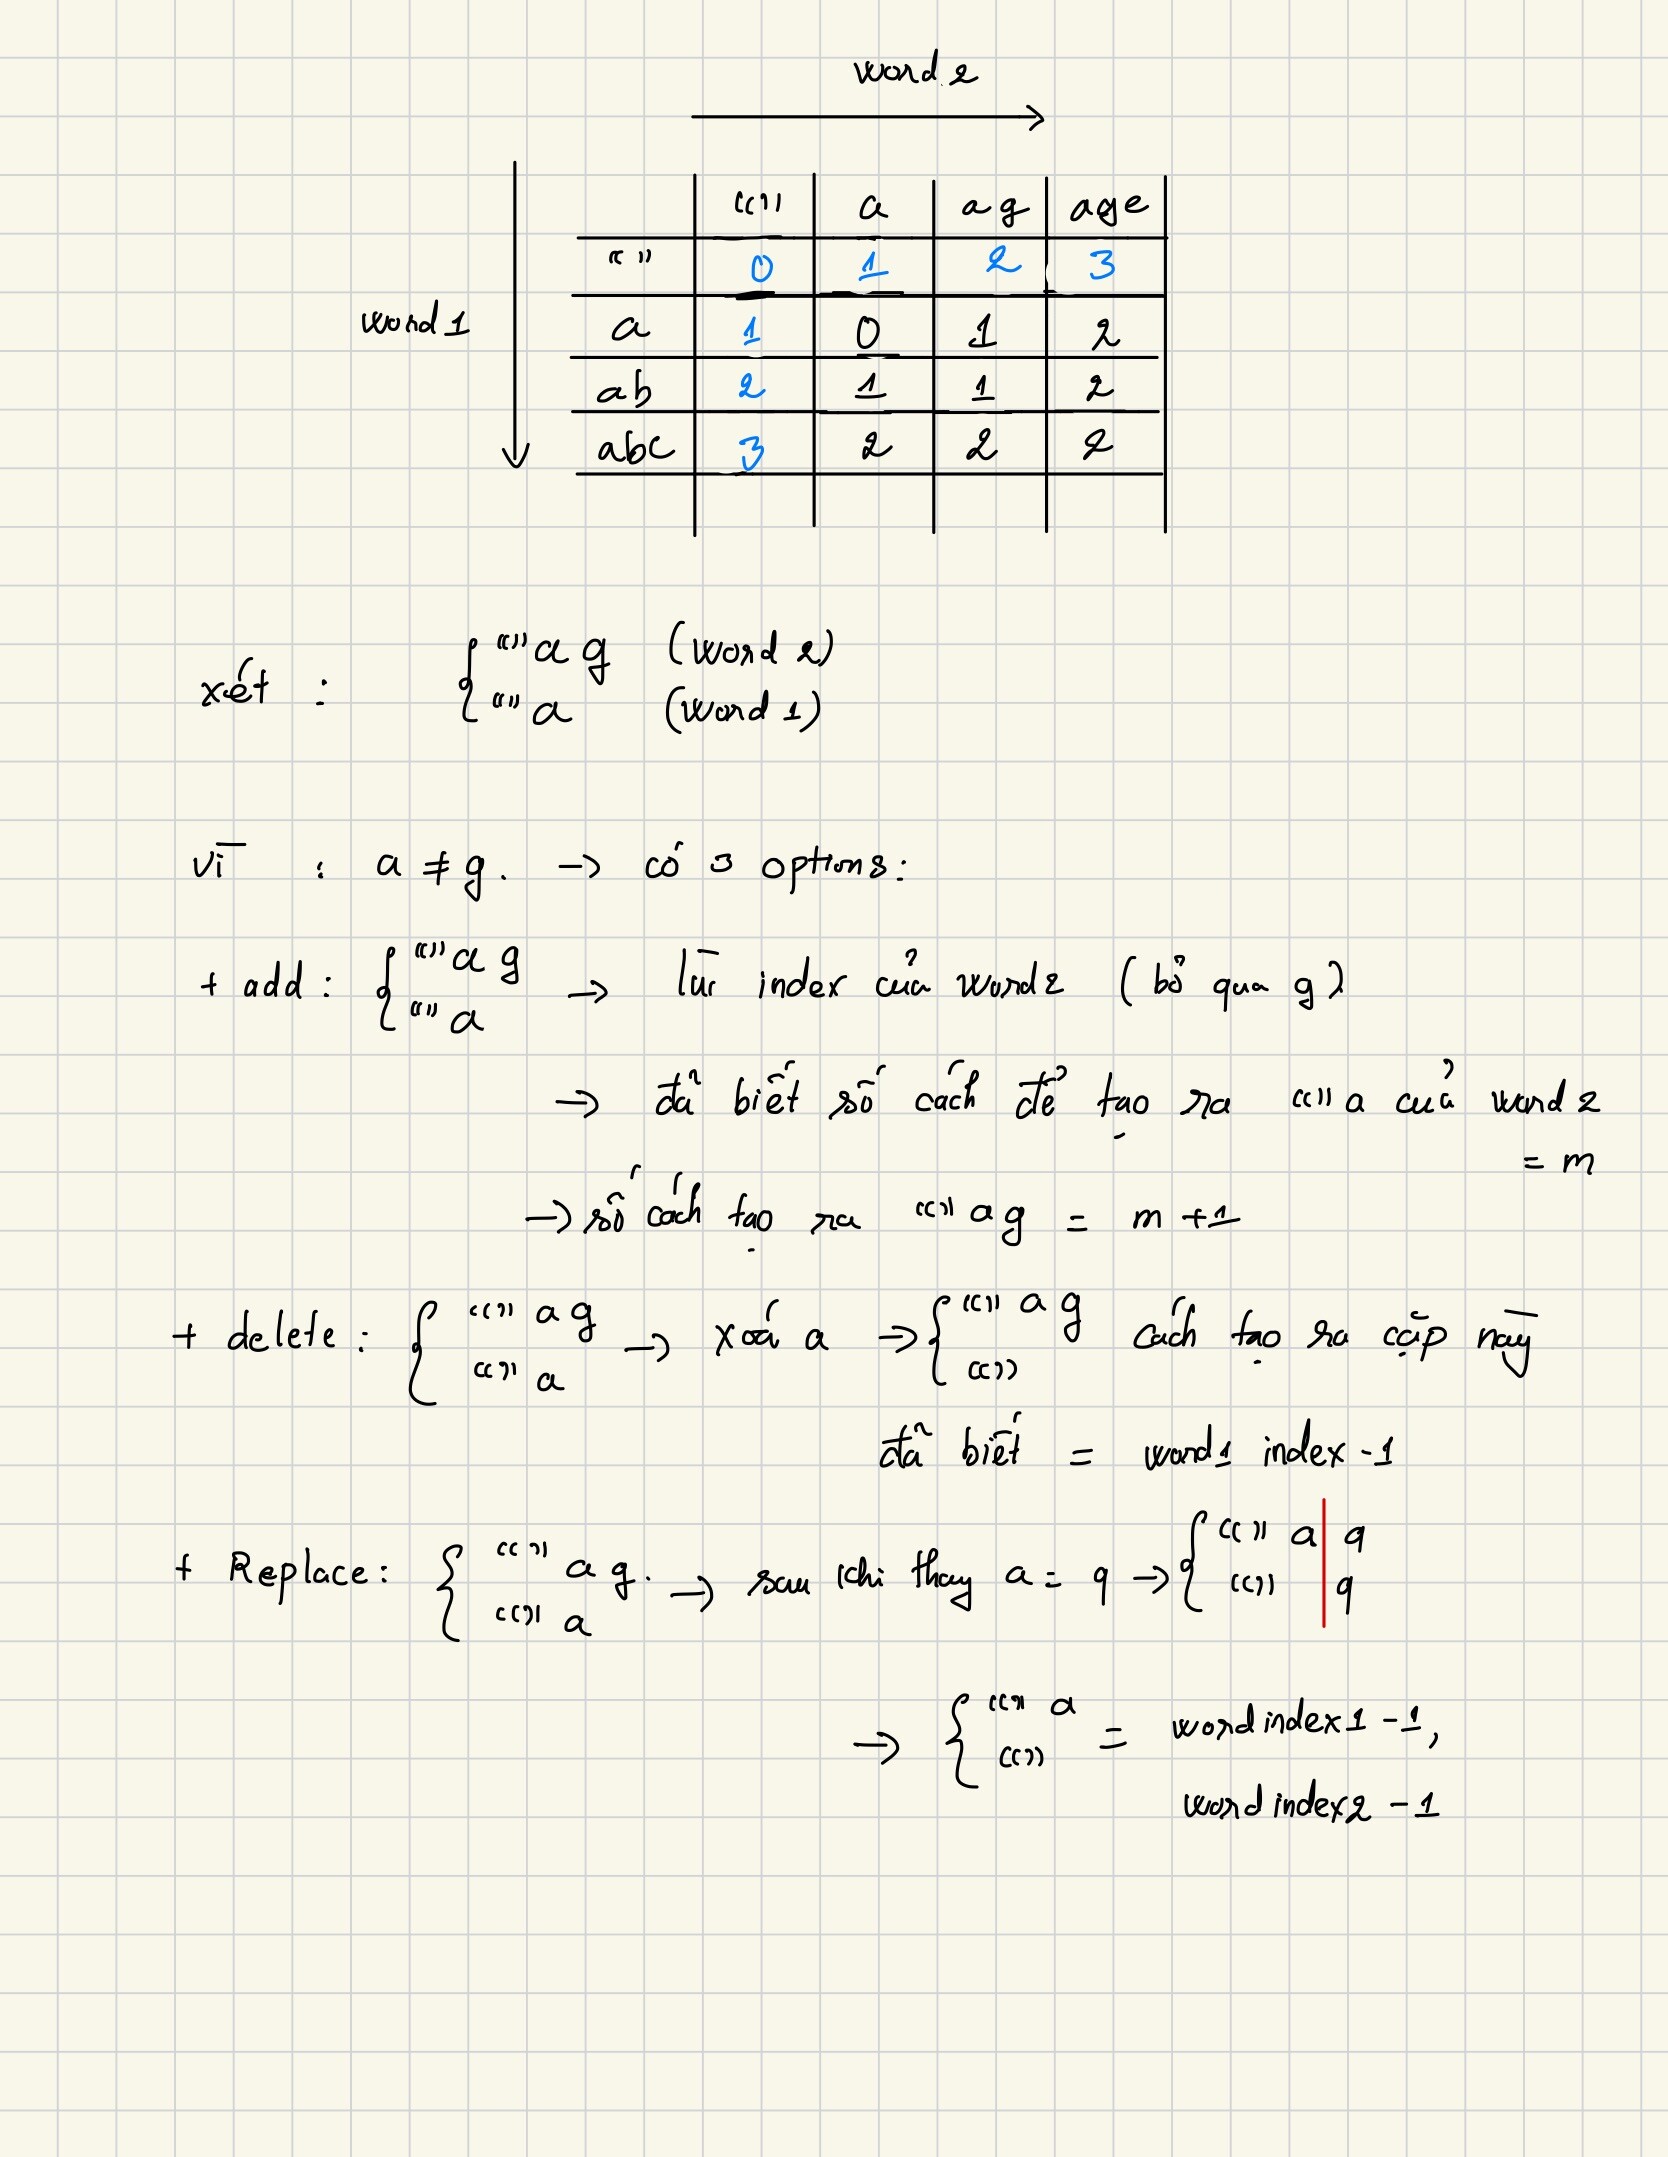 word 2
"" a ag age
"" 0 1 2 3
word 1
a 1 0 1 2
ab 2 1 1 2
abc 3 2 2 2
xét : { "" a g (word 2)
"" a (word 1)
vì : a ≠ g. → có 3 options:
+ add : { "" a g → lùi index của word 2 (bỏ qua g)
"" a
→ đã biết số cách để tạo ra "" a của word 2
= m
→ số cách tạo ra "" a g = m + 1
+ delete : { "" a g → xoá a → { "" a g cách tạo ra cặp này
"" a ""
đã biết = word 1 index - 1
+ Replace : { "" a g. → sau khi thay a = g → { "" a | g
"" a "" | g
→ { "" a = word index 1 - 1,
""
word index 2 - 1